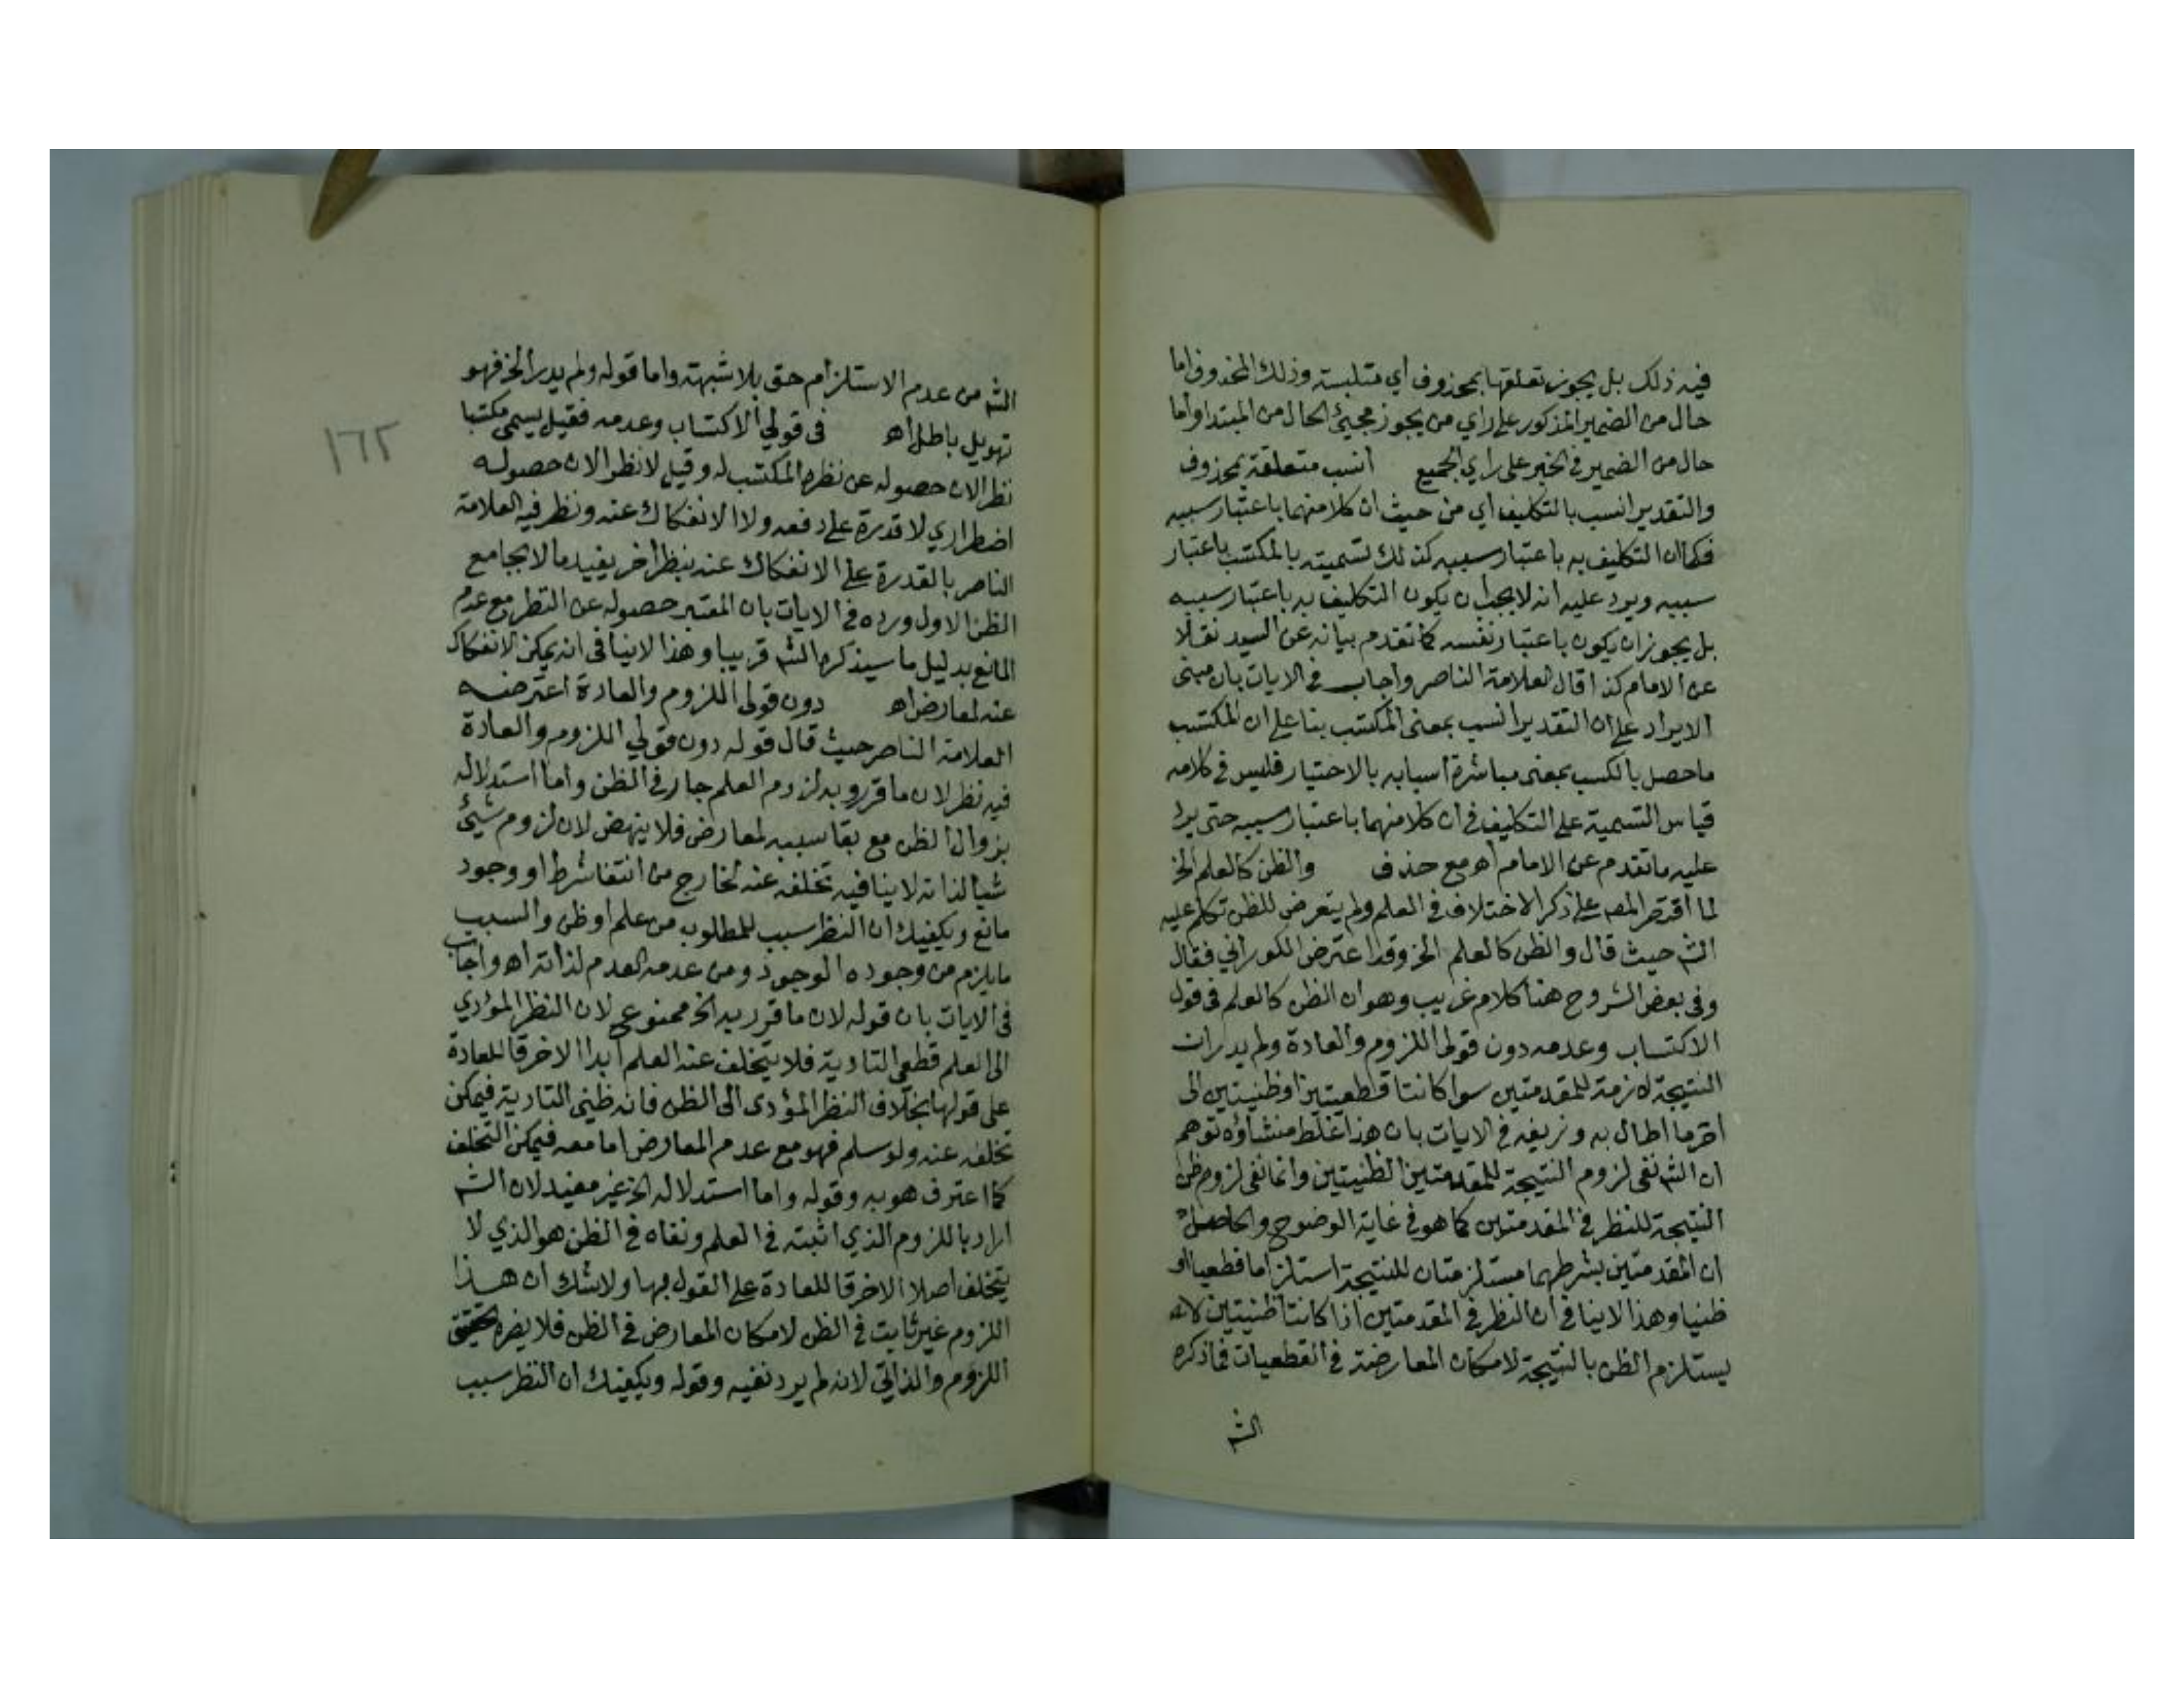 فيه ذلك بل يجوز تعلقها بمحذوف أي متلبسة وذلك المحذوف اما
حال من الضمير المذكور على راي من يجوز مجيئ الحال من المبتدا واما
حال من الضمير في الخبر على راي الجميع انسب متعلقة بمحذوف
والتقدير انسب بالتكليف أي من حيث ان كلا منهما باعتبار سببه
فكما ان التكليف به باعتبار سببه كذلك تسميته بالمكتسب باعتبار
سببه ويرد عليه انه لا يجب ان يكون التكليف به باعتبار سببه
بل يجوز ان يكون باعتبار نفسه كما تقدم بيانه عن السيد نقلا
عن الامام كذا قال العلامة الناصر واجاب في الايات بان مبنى
الايراد على ان التقدير انسب بمعنى المكتسب بنا على ان المكتسب
ما حصل بالكسب بمعنى مباشرة اسبابه بالاختيار فليس في كلامه
قياس التسمية على التكليف في ان كلا منهما باعتبار سببه حتى يرد
عليه ما تقدم عن الامام اه مع حذف والظن كالعلم الخ
لما اقتصر المصـ على ذكر الاختلاف في العلم ولم يتعرض للظن تكلم عليه
الشـ حيث قال والظن كالعلم الخ وقد اعترض الكوراني فقال
وفي بعض الشروح هنا كلام غريب وهو ان الظن كالعلم في قول
الاكتساب وعدمه دون قولي اللزوم والعادة ولم يدر ان
النتيجة لازمة للمقدمتين سوا كانتا قطعيتين او ظنيتين الى
اخر ما اطال به وزيفه في الايات بان هذا غلط منشاؤه توهم
ان الشـ نفى لزوم النتيجة للمقدمتين الظنيتين وانما نفى لزوم ظن
النتيجة للنظر في المقدمتين كما هو في غاية الوضوح والحاصل
ان المقدمتين بشرطهما مستلزمتان للنتيجة استلزاما قطعيا او
ظنيا وهذا لا ينافي ان النظر في المقدمتين اذا كانتا ظنيتين لا
يستلزم الظن بالنتيجة لامكان المعارضة في القطعيات فما ذكره
الشـ
١٦٢
الشـ من عدم الاستلزام حق بلا شبهة واما قوله ولم يدر الخ فهو
تهويل باطل اه في قولي الاكتساب وعدمه فقيل يسمى مكتسبا
نظرا لان حصوله عن نظره المكتسب له وقيل لا نظرا لان حصوله
اضطراري لا قدرة على دفعه ولا الانفكاك عنه ونظر فيه العلامة
الناصر بالقدرة على الانفكاك عنه بنظر اخر يفيد ما لا يجامع
الظن الاول ورده في الايات بان المعتبر حصوله عن النظر مع عدم
المانع بدليل ما سيذكره الشـ قريبا وهذا لا ينافي انه يمكن الانفكاك
عنه لمعارض اه دون قولي اللزوم والعادة اعترضه
العلامة الناصر حيث قال قوله دون قولي اللزوم والعادة
فيه نظر لان ما قرروه به لزوم العلم جار في الظن واما استدلاله
بزوال الظن مع بقا سببه لمعارض فلا ينهض لان لزوم شيئ
شيا لذاته لا ينافيه تخلفه عنه لخارج من انتفا شرط او وجود
مانع ويكفيك ان النظر سبب للمطلوب من علم او ظن والسبب
ما يلزم من وجوده الوجود ومن عدمه العدم لذاته اه واجاب
في الايات بان قوله لان ما قرر به الخ ممنوع لان النظر المؤدي
الى العلم قطعي التادية فلا يتخلف عنه العلم ابدا الا خرقا للعادة
على قولها بخلاف النظر المؤدى الى الظن فانه ظني التادية فيمكن
تخلفه عنه ولو سلم فهو مع عدم المعارض اما معه فيمكن التخلف
كما اعترف هو به وقوله واما استدلاله الخ غير مفيد لان الشـ
اراد باللزوم الذي اثبته في العلم ونفاه في الظن هو الذي لا
يتخلف اصلا الا خرقا للعادة على القول بها ولا شك ان هذا
اللزوم غير ثابت في الظن لامكان المعارض في الظن فلا يضره تحقيق
اللزوم والذاتي لانه لم يرد نفيه وقوله ويكفيك ان النظر سبب